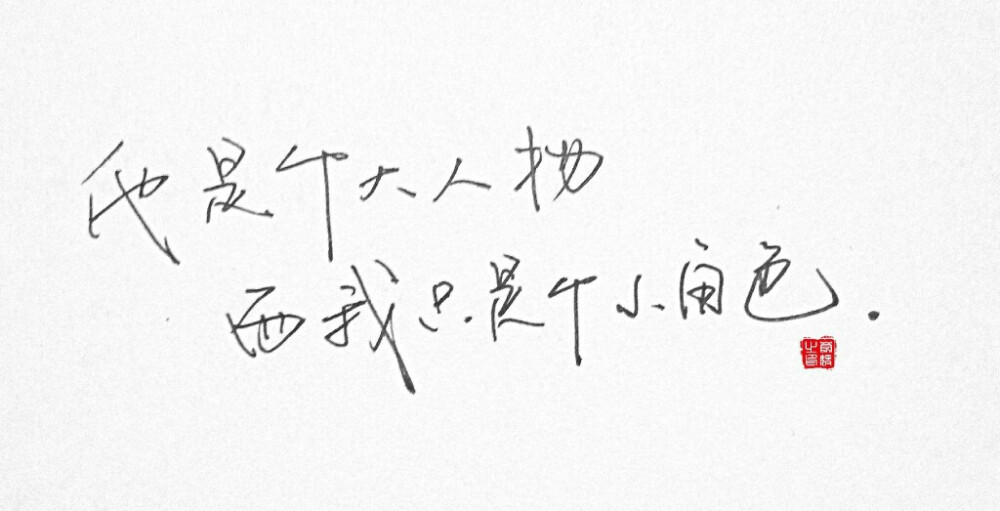 他是个大人物
而我只是个小角色.